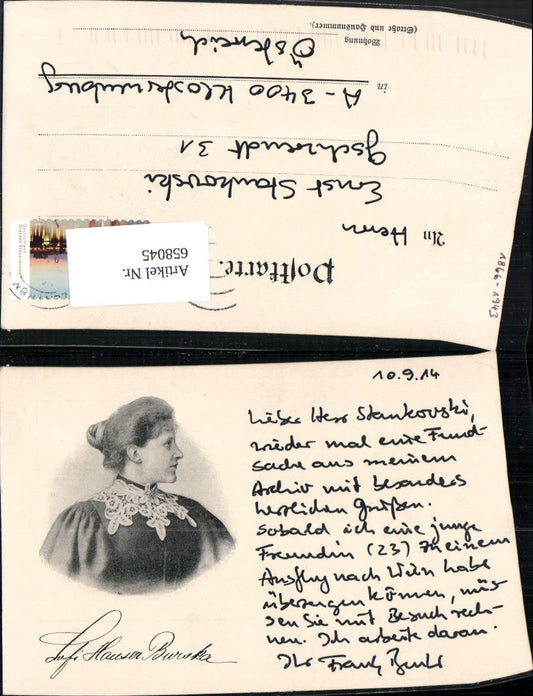 Postkarte.
An Herrn
Ernst Stankovski
Gschwendt 31
in A-3400 Klosterneuburg
Wohnung Österreich
(Straße und Hausnummer).
Artikel Nr.
658045
1866-1943
10.9.14
Lieber Herr Stankovski,
wieder mal eine Fund-
sache aus meinem
Archiv mit besonders
herzlichen Grüßen.
Sobald ich eine junge
Freundin (23) zu einem
Ausflug nach Wien habe
überzeugen können, müs-
sen Sie mit Besuch rech-
nen. Ich arbeite daran.
Ihr Frank
Sofi Hauser Burska